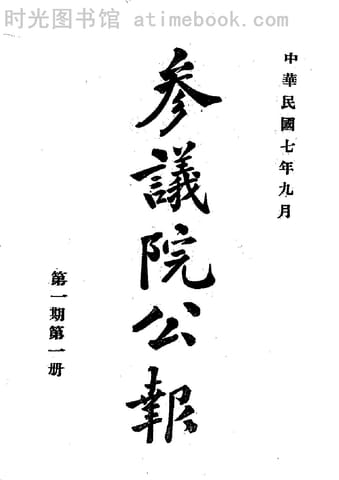 时光图书馆 - atimebook.com
中華民國七年九月
參議院公報
第一期第一册